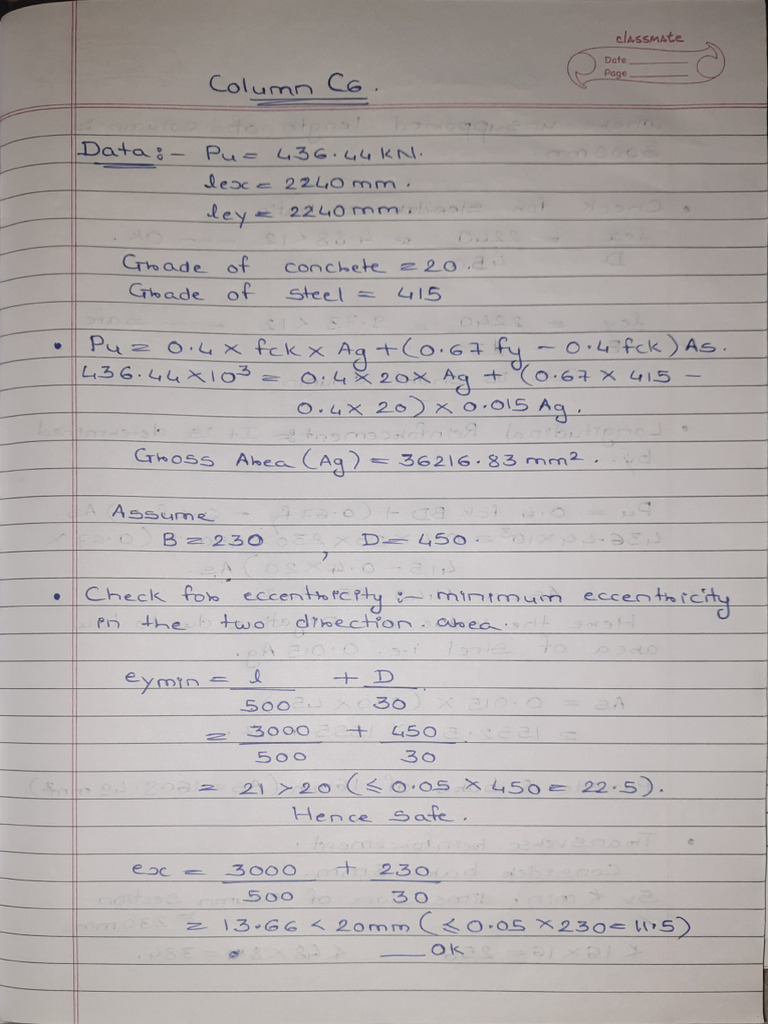 classmate
Date
Page
Column C6.
Data :- Pu = 436.44 KN.
lex = 2240 mm.
ley = 2240 mm.
Grade of concrete = 20.
Grade of steel = 415
• Pu = 0.4 x fck x Ag + (0.67 fy - 0.4 fck) As.
436.44 x 10³ = 0.4 x 20 x Ag + (0.67 x 415 -
0.4 x 20) x 0.015 Ag.
Gross Area (Ag) = 36216.83 mm².
Assume
B = 230 , D = 450.
• Check for eccentricity :- minimum eccentricity
in the two direction. area.
eymin = l/500 + D/30
= 3000/500 + 450/30
= 21 > 20 (≤ 0.05 x 450 = 22.5).
Hence safe.
ex = 3000/500 + 230/30
= 13.66 < 20mm (≤ 0.05 x 230 = 11.5)
— OK